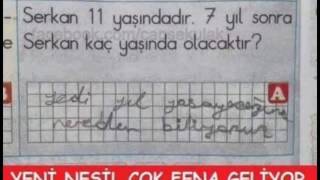 Serkan 11 yaşındadır. 7 yıl sonra
Serkan kaç yaşında olacaktır?
A
yedi yıl yaşayacağını
nereden biliyorsun
YENİ NESİL ÇOK FENA GELİYOR